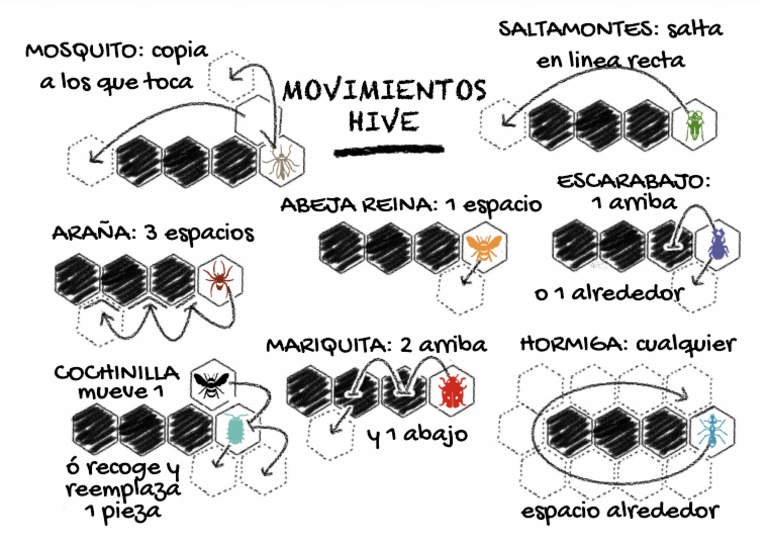 MOSQUITO: copia
a los que toca
MOVIMIENTOS
HIVE
SALTAMONTES: salta
en linea recta
ARAÑA: 3 espacios
ABEJA REINA: 1 espacio
ESCARABAJO:
1 arriba
o 1 alrededor
COCHINILLA
mueve 1
ó recoge y
reemplaza
1 pieza
MARIQUITA: 2 arriba
y 1 abajo
HORMIGA: cualquier
espacio alrededor